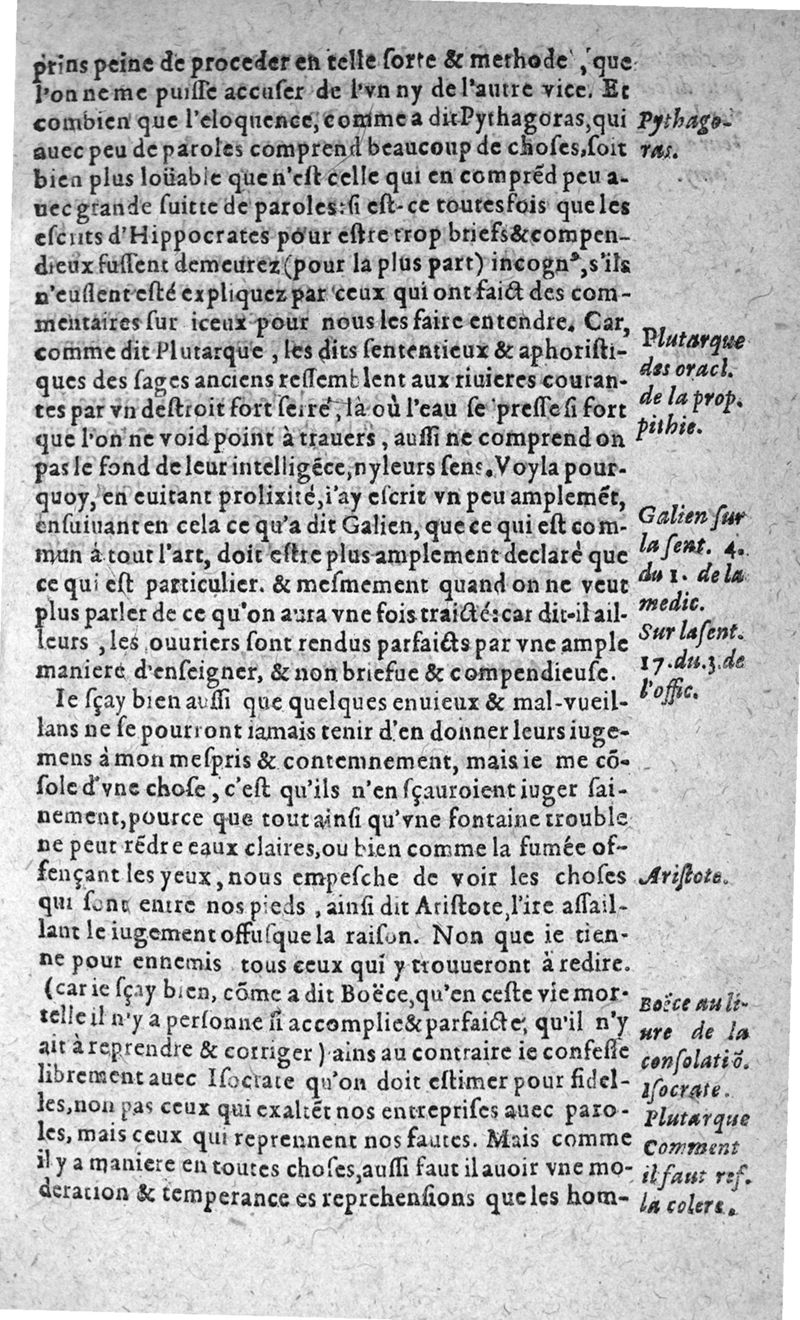 prins peine de proceder en telle ſorte & methode, que
l'on ne me puiſſe accuſer de l'vn ny de l'autre vice. Et
combien que l'eloquence, comme a dit Pythagoras, qui
auec peu de paroles comprend beaucoup de choſes, ſoit
bien plus loüable que n'eſt celle qui en comprẽd peu a-
uec grande ſuitte de paroles: ſi eſt-ce toutesfois que les
eſcrits d'Hippocrates pour eſtre trop briefs & compen-
dieux fuſſent demeurez (pour la plus part) incognꝰ, s'ils
n'euſſent eſté expliquez par ceux qui ont faict des com-
mentaires ſur iceux pour nous les faire entendre. Car,
comme dit Plutarque, les dits ſententieux & aphoriſti-
ques des ſages anciens reſſemblent aux riuieres couran-
tes par vn deſtroit fort ſerré, là où l'eau ſe preſſe ſi fort
que l'on ne void point à trauers, auſſi ne comprend on
pas le fond de leur intelligẽce, ny leurs ſens. Voyla pour-
quoy, en euitant prolixité, i'ay eſcrit vn peu amplemẽt,
enſuiuant en cela ce qu'a dit Galien, que ce qui eſt com-
mun à tout l'art, doit eſtre plus amplement declaré que
ce qui eſt particulier. & meſmement quand on ne veut
plus parler de ce qu'on aura vne fois traicté: car dit-il ail-
leurs, les ouuriers ſont rendus parfaicts par vne ample
maniere d'enſeigner, & non briefue & compendieuſe.
Ie ſçay bien auſſi que quelques enuieux & mal-vueil-
lans ne ſe pourront iamais tenir d'en donner leurs iuge-
mens à mon meſpris & contemnement, mais ie me cõ-
ſole d'vne choſe, c'eſt qu'ils n'en ſçauroient iuger ſai-
nement, pource que tout ainſi qu'vne fontaine trouble
ne peut rẽdre eaux claires, ou bien comme la fumée of-
fençant les yeux, nous empeſche de voir les choſes
qui ſont entre nos pieds, ainſi dit Ariſtote, l'ire aſſail-
lant le iugement offuſque la raiſon. Non que ie tien-
ne pour ennemis tous ceux qui y trouueront à redire.
(car ie ſçay bien, cõme a dit Boëce, qu'en ceſte vie mor-
telle il n'y a perſonne ſi accomplie & parfaicte, qu'il n'y
ait à reprendre & corriger) ains au contraire ie confeſſe
librement auec Iſocrate qu'on doit eſtimer pour fidel-
les, non pas ceux qui exaltẽt nos entrepriſes auec paro-
les, mais ceux qui reprennent nos fautes. Mais comme
il y a maniere en toutes choſes, auſſi faut il auoir vne mo-
deration & temperance es reprehenſions que les hom-
Pythago-
ras.
Plutarque
des oracl.
de la prop.
pithie.
Galien ſur
la ſent. 4.
du 1. de la
medic.
Sur la ſent.
17. du. 3. de
l'offic.
Ariſtote.
Boëce au li-
ure de la
conſolatiõ.
Iſocrate.
Plutarque
Comment
il faut ref.
la colere.